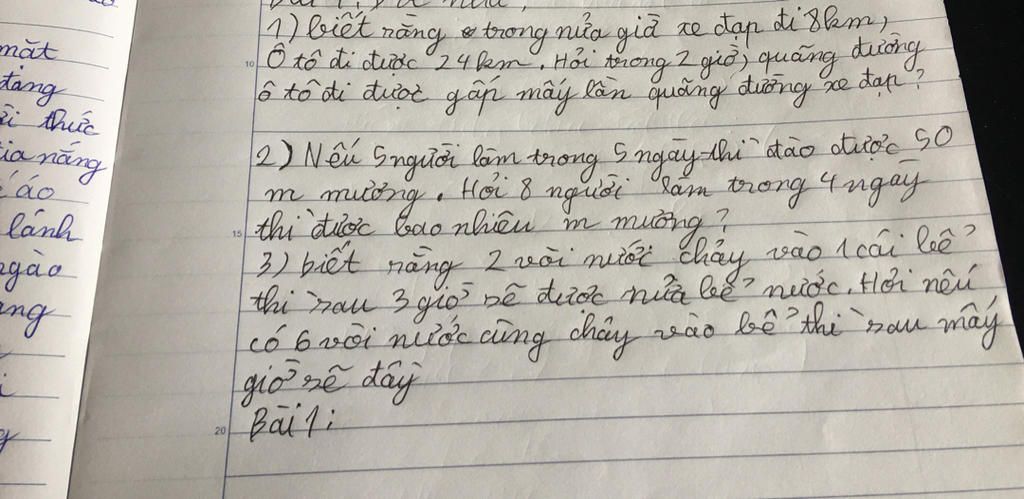 mặt
đảng
thức
nắng
áo
lánh
ngào
1) biết rằng trong nửa giờ xe đạp đi 8km,
Ô tô đi được 24km. Hỏi trong 2 giờ, quãng đường
ô tô đi được gấp mấy lần quãng đường xe đạp?
10
2) Nếu 5 người làm trong 5 ngày thì đào được 50
m mương. Hỏi 8 người làm trong 4 ngày
thì được bao nhiêu m mương?
15
3) biết rằng 2 vòi nước chảy vào 1 cái bể
thì sau 3 giờ sẽ được nửa bể nước. Hỏi nếu
có 6 vòi nước cùng chảy vào bể thì sau mấy
giờ sẽ đầy
Bài 1:
20